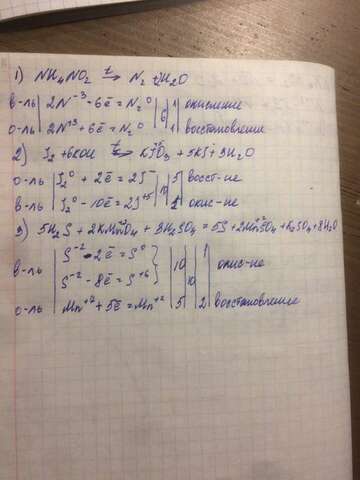 1) NH₄NO₂ →t N₂ + H₂O
в-ль | 2N⁻³ - 6ē = N₂⁰ | 6 | 1 | окисление
о-ль | 2N⁺³ + 6ē = N₂⁰ | 1 | восстановление
2) J₂ + 6KOH → KJO₃ + 5KJ + 3H₂O
о-ль | J₂⁰ + 2ē = 2J⁻ | 10 | 5 | восст-ие
в-ль | J₂⁰ - 10ē = 2J⁺⁵ | 1 | окис-ие
3) 5H₂S + 2KMnO₄ + 3H₂SO₄ = 5S + 2MnSO₄ + K₂SO₄ + 8H₂O
в-ль | S⁻² - 2ē = S⁰ | 10 | 1 | опис-ие
S⁻² - 8ē = S⁺⁶ | 10
о-ль | Mn⁺⁷ + 5ē = Mn⁺² | 5 | 2 | восстановление